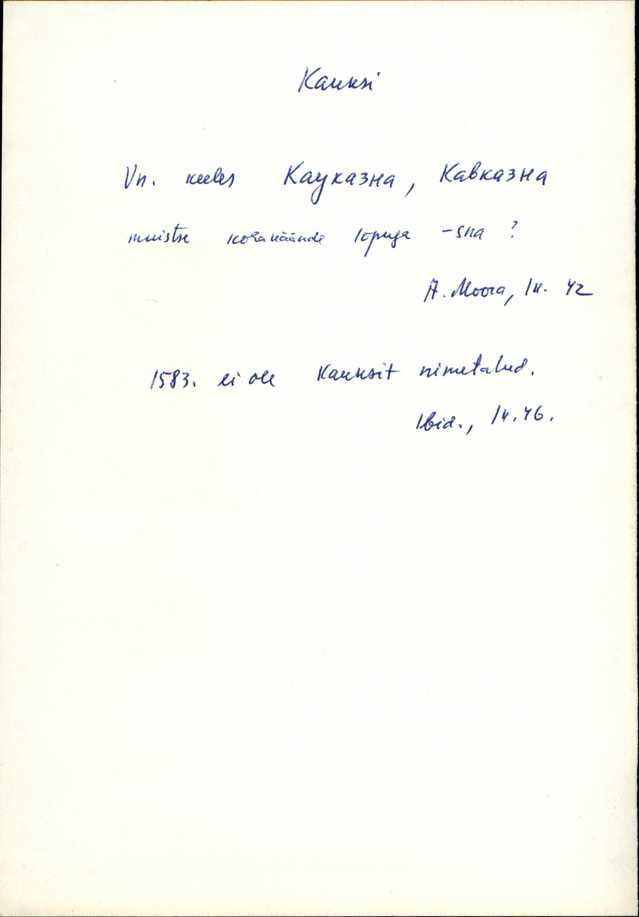 Kauksi
Vn. keeles Кауказна, Кавказна
muistse kohakäände lõpuga -sna ?
A. Moora, lk. 42
1583. ei ole Kauksit nimetatud.
Ibid., lk. 46.